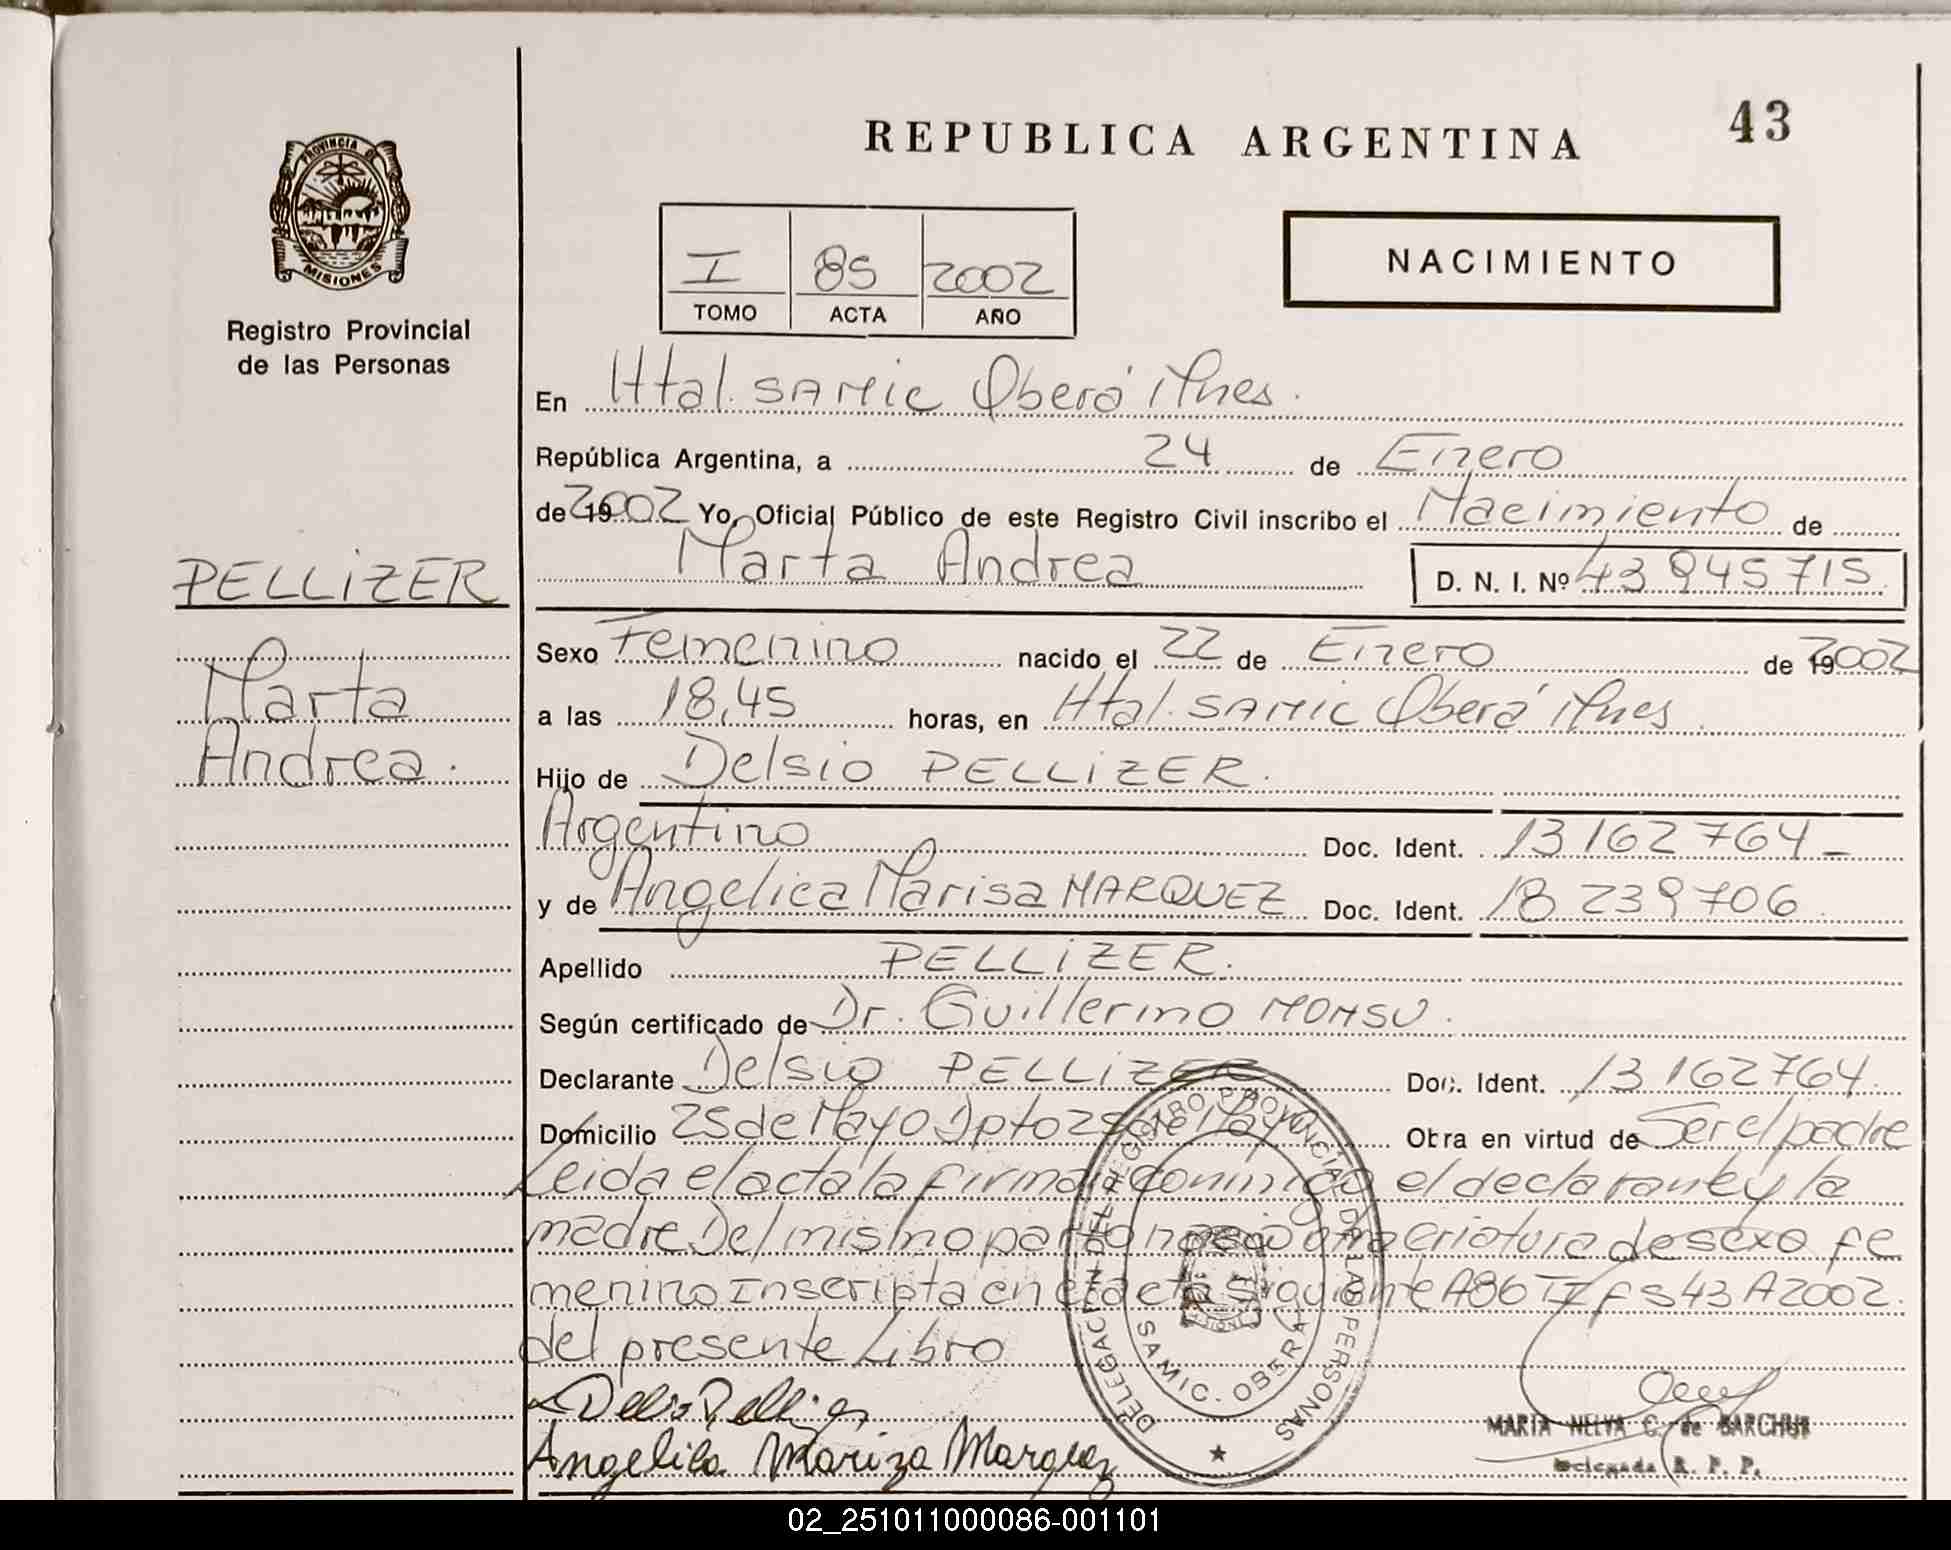 43
REPUBLICA ARGENTINA
PROVINCIA DE
MISIONES
Registro Provincial
de las Personas
I 85 2002
TOMO ACTA AÑO
NACIMIENTO
En Htal. SAMIC Oberá Mnes.
República Argentina, a 24 de Enero
de 19 2002 Yo, Oficial Público de este Registro Civil inscribo el Nacimiento de
Marta Andrea D. N. I. Nº 43 945 715
PELLIZER
Marta
Andrea.
Sexo Femenino nacido el 22 de Enero de 19 2002
a las 18,45 horas, en Htal. SAMIC Oberá Mnes.
Hijo de Delsio PELLIZER.
Argentino Doc. Ident. 13 162 764
y de Angelica Marisa MARQUEZ Doc. Ident. 18 239 706
Apellido PELLIZER.
Según certificado de Dr. Guillermo MONSU.
Declarante Delsio PELLIZER Doc. Ident. 13 162 764.
Domicilio 25 de Mayo Dpto 25 de Mayo Obra en virtud de Ser el padre
Leida el acta la firman conmigo el declarante y la
madre. Del mismo parto nació otra criatura de sexo fe
menino Inscripta en el acta siguiente A86 TI fs 43 A2002.
del presente Libro
Angelica Mariza Marquez
DELEGACION DEL REGISTRO PROVINCIAL DE LAS PERSONAS
SAMIC. OBERA
MARTA NELVA C. de BARCHUK
Delegada R. P. P.
02_251011000086-001101